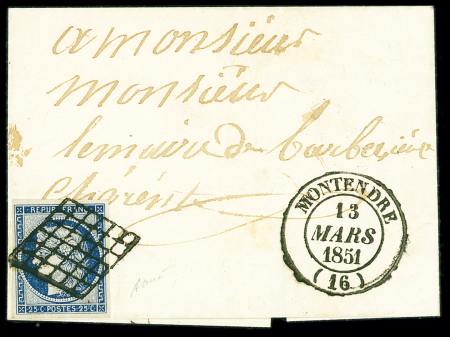 a monsieur
monsieur
lemaire de barbezieux
charente
REPUB. FRANC.
25 C POSTES 25 C
MONTENDRE
13
MARS
1851
(16)